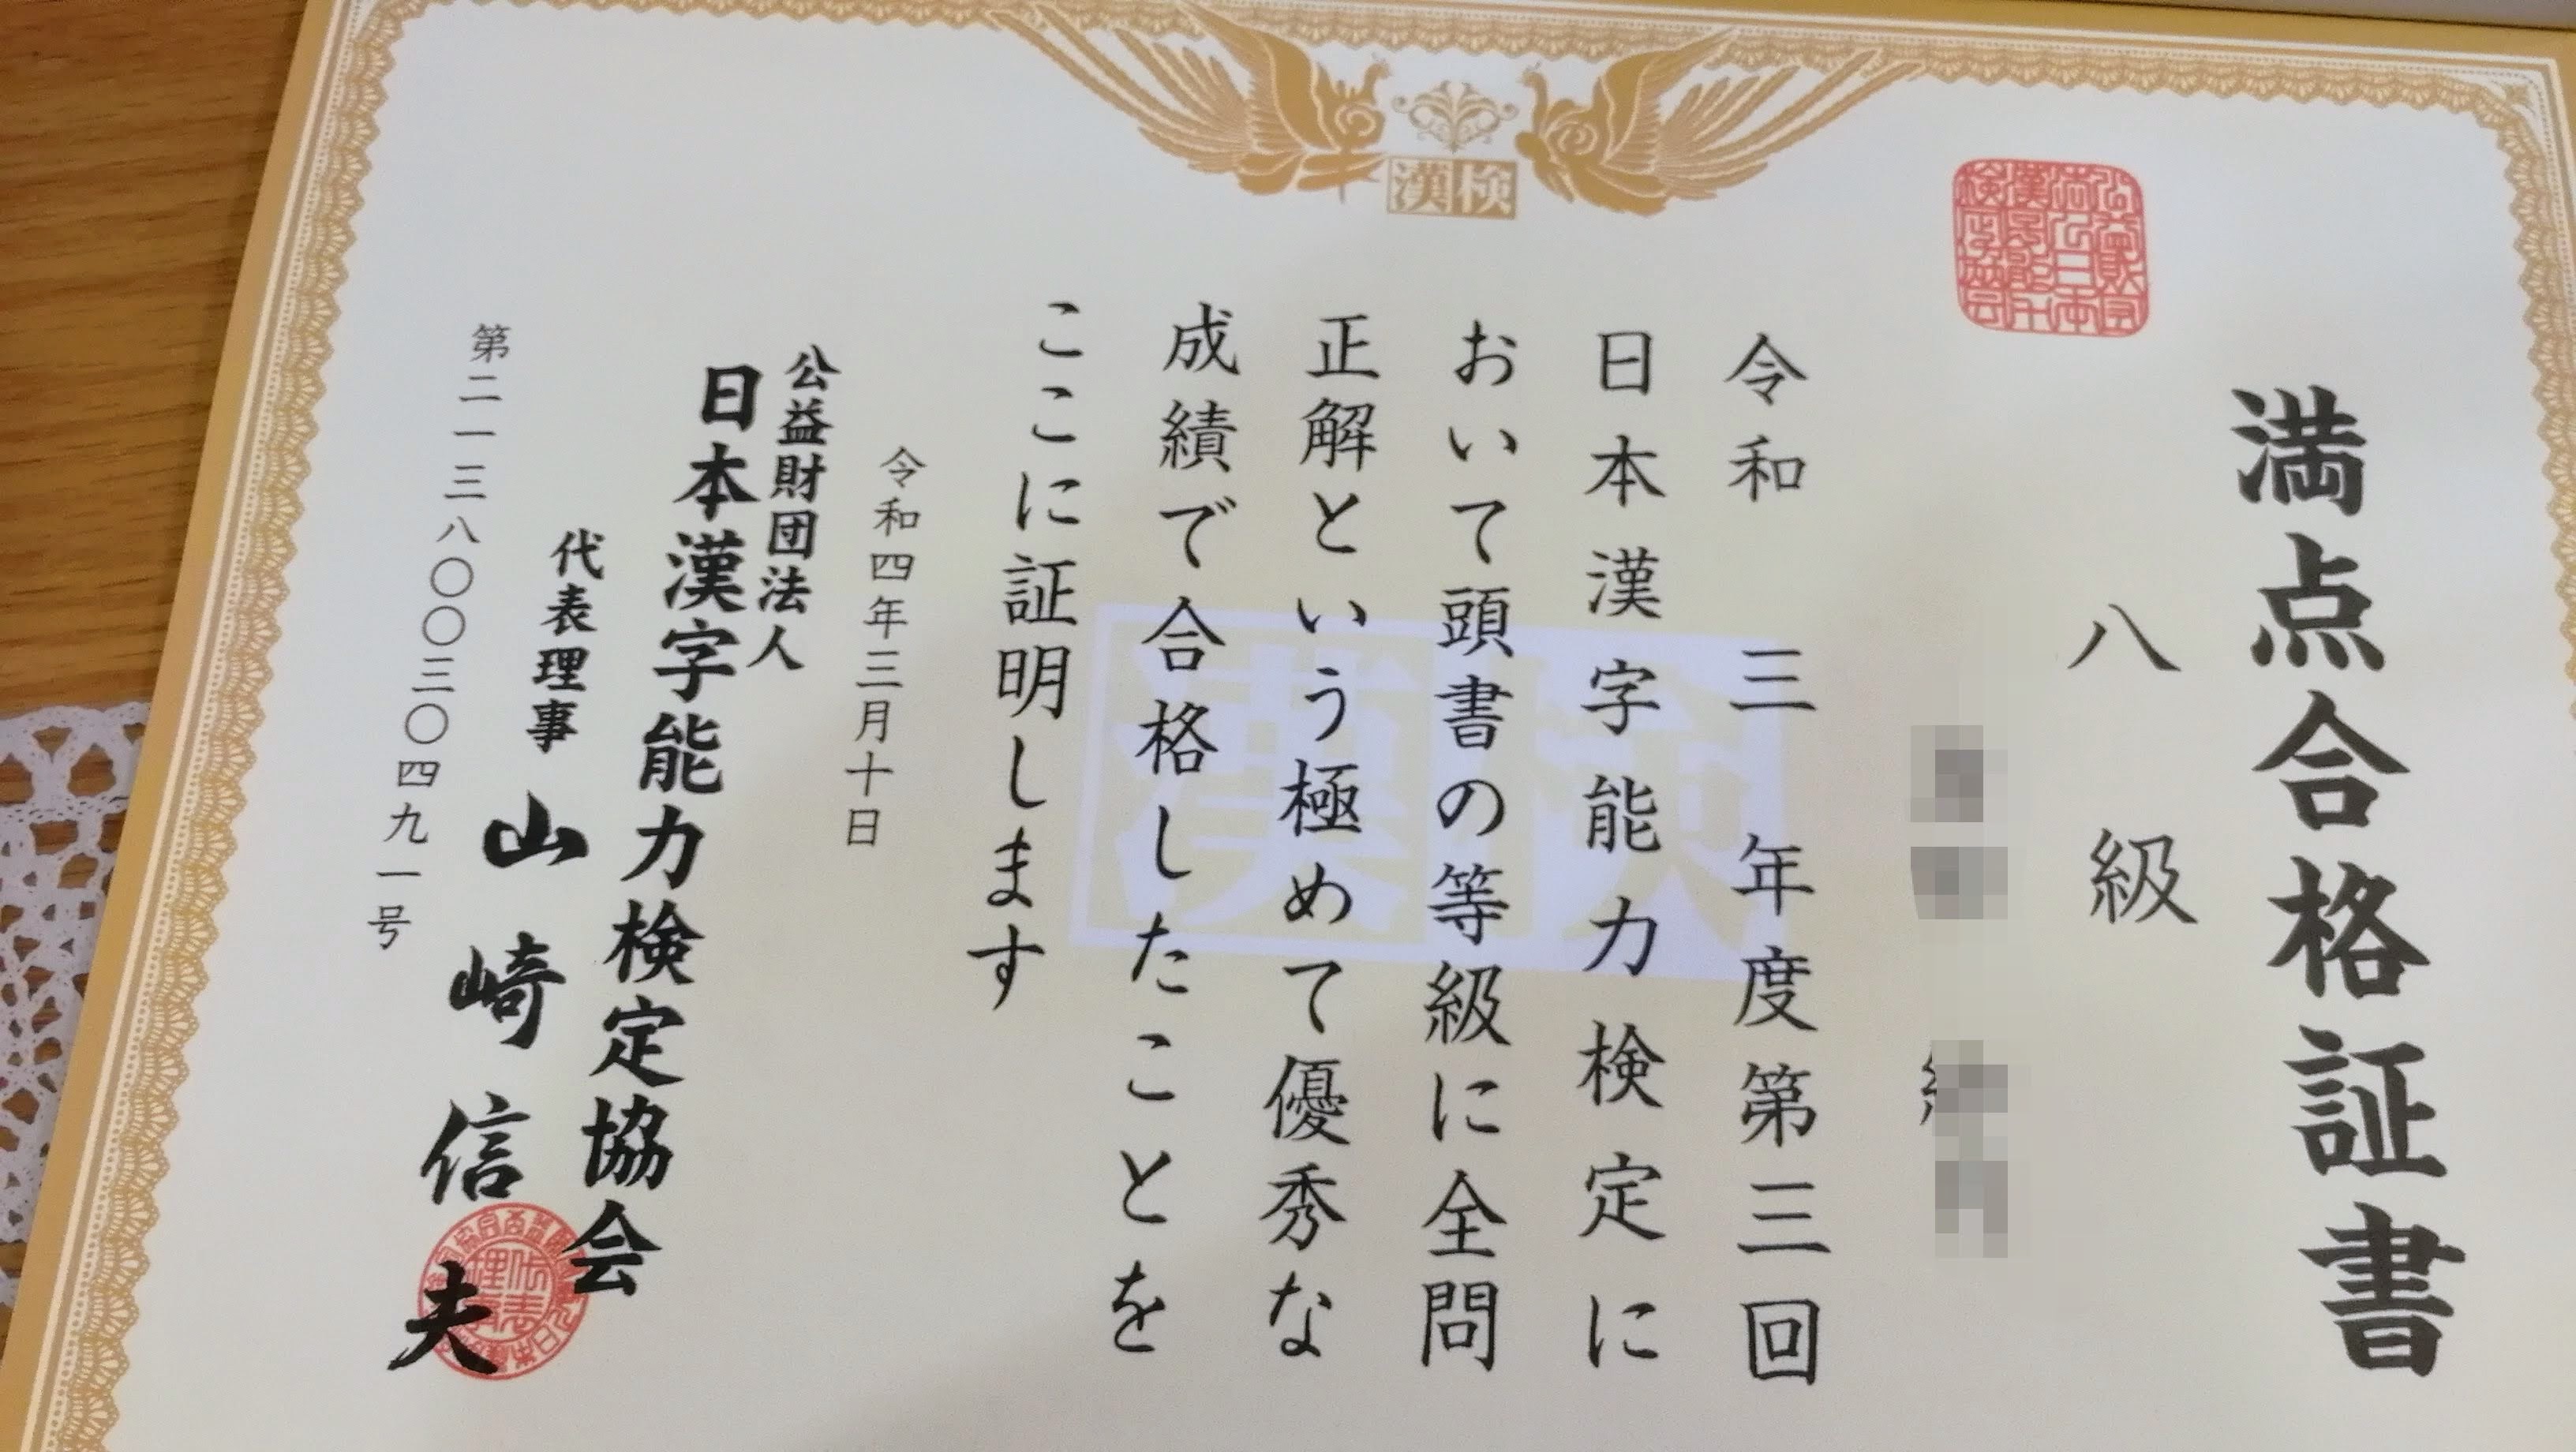 漢検
満点合格証書
八級
令和三年度第三回
日本漢字能力検定に
おいて頭書の等級に全問
正解という極めて優秀な
成績で合格したことを
ここに証明します
令和四年三月十日
公益財団法人
日本漢字能力検定協会
代表理事 山崎信夫
第二一三八〇〇三〇四九一号
漢検